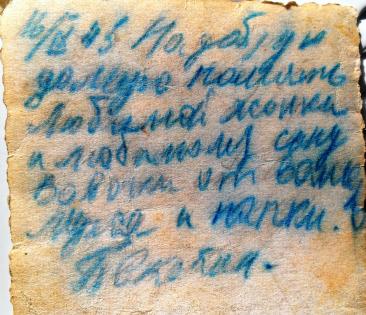 На добрую
долгую память
Любимой жонки
и любимому сыну
Вовочки от вашего
мужа и папки.